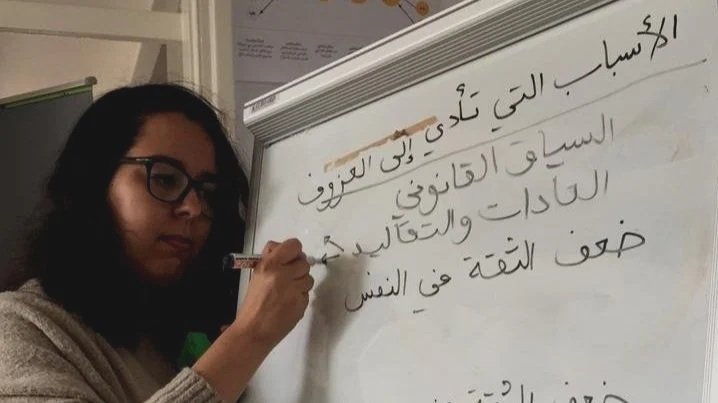 الأسباب التي تأدي إلى العزوف
السياق القانوني
العادات والتقاليد
ضعف الثقة في النفس
ضعف الثقة